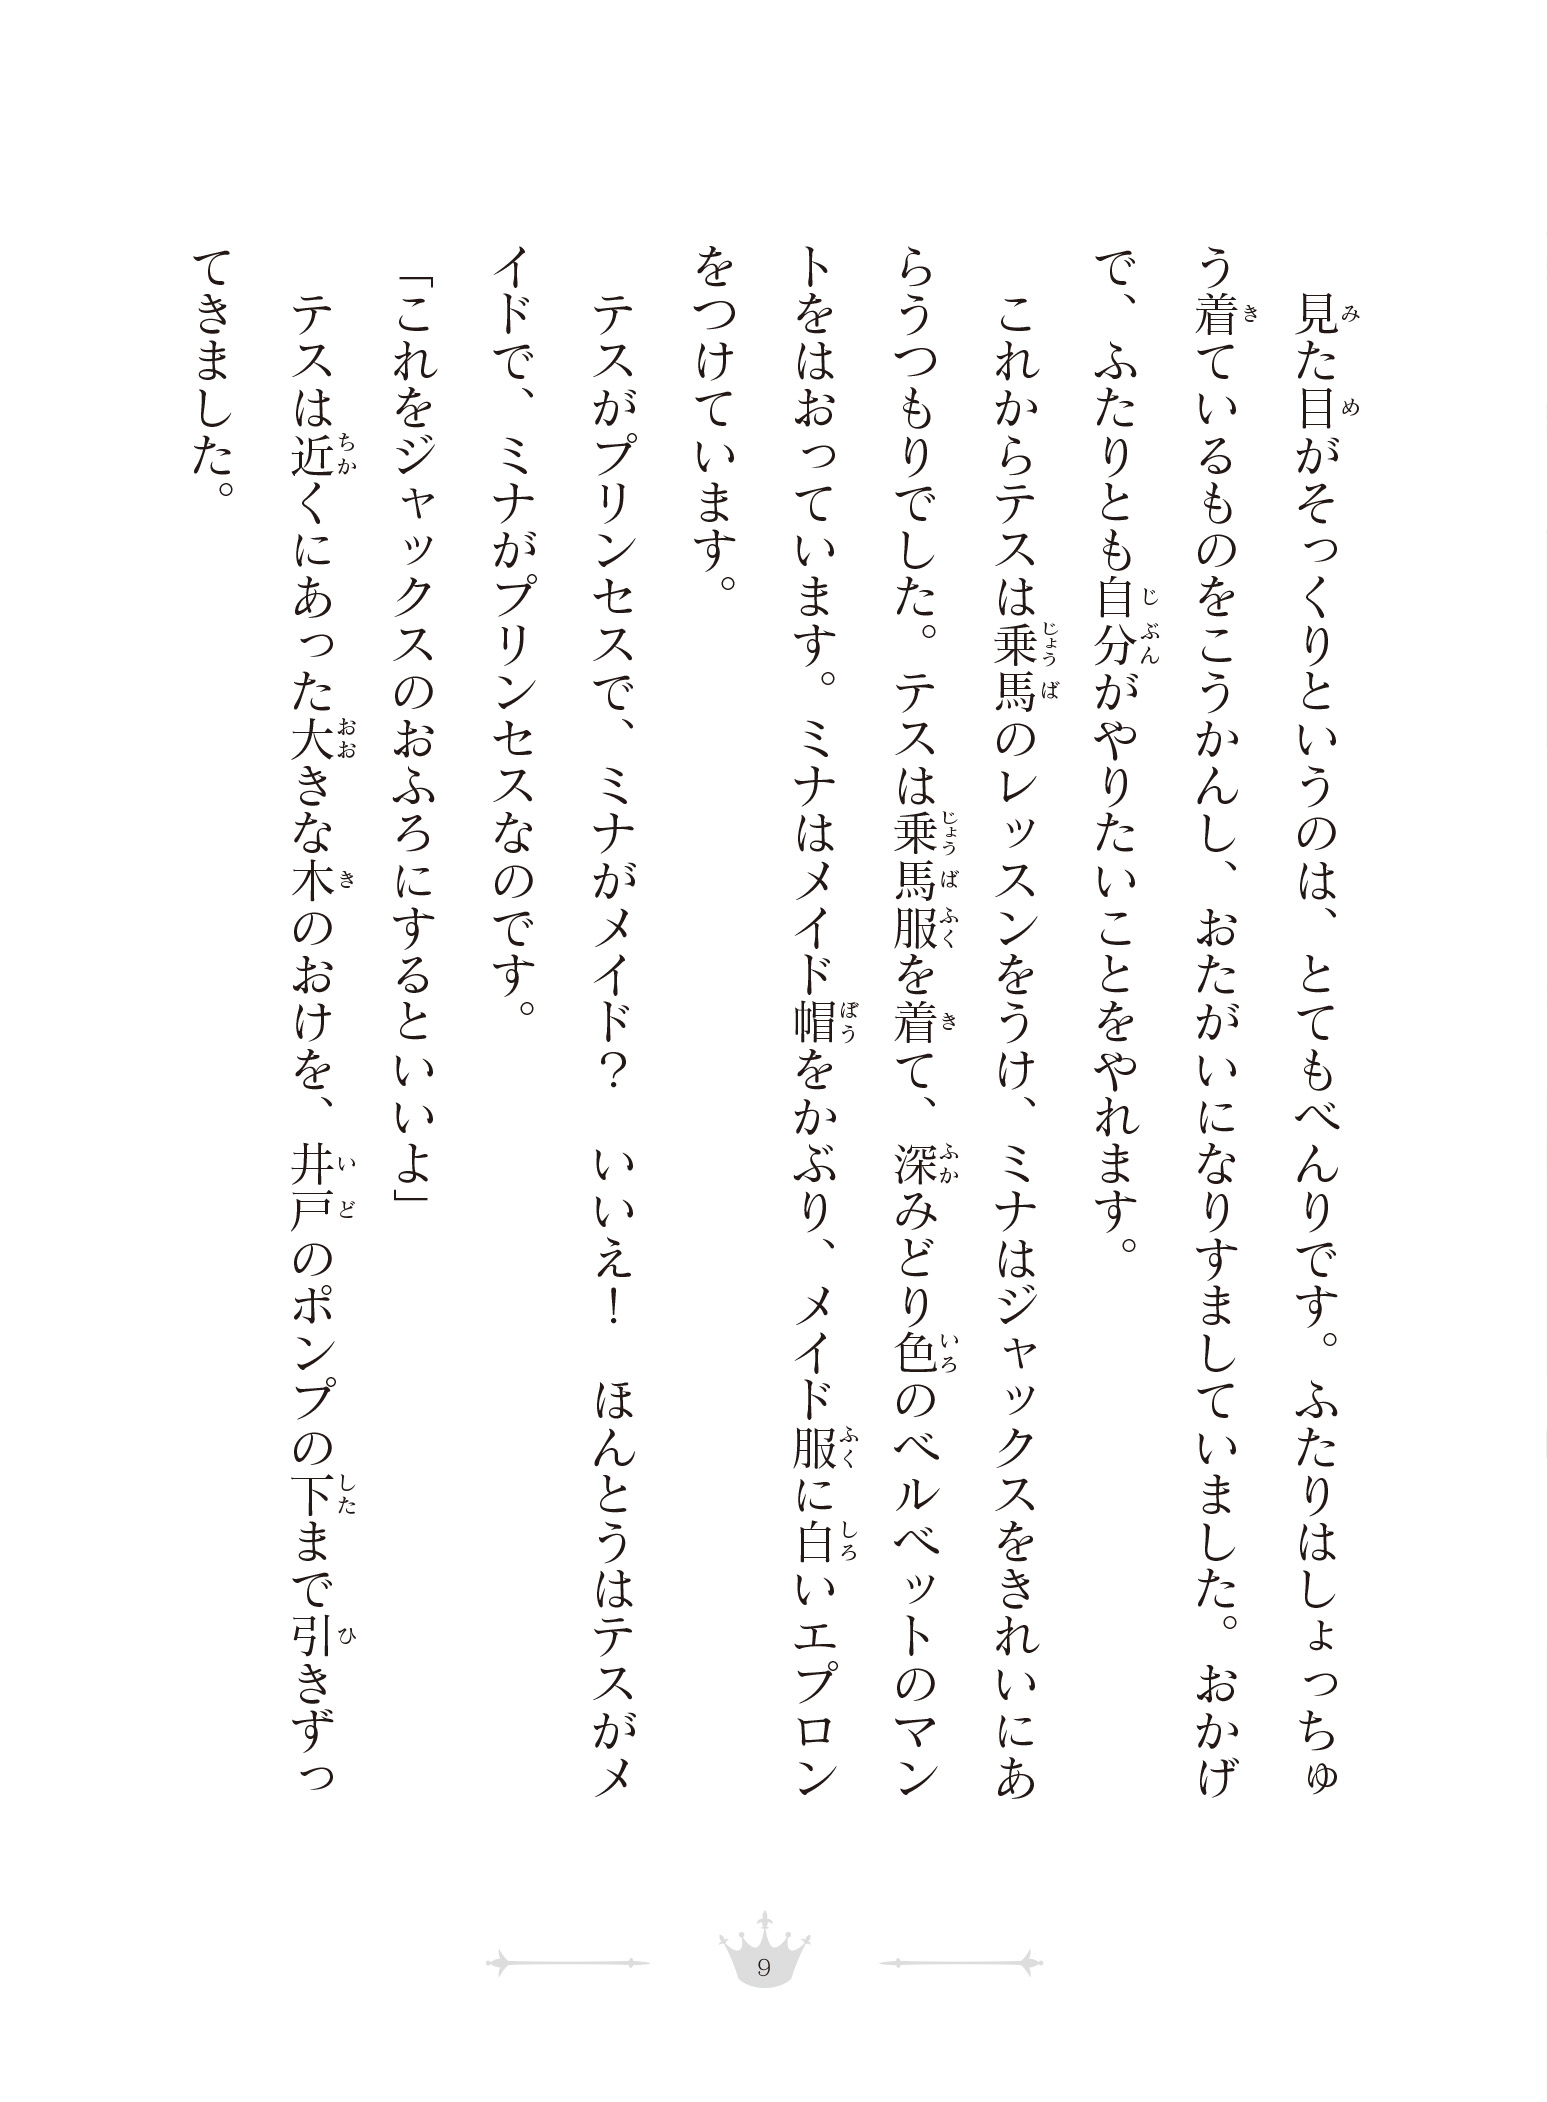 見た目がそっくりというのは、とてもべんりです。ふたりはしょっちゅ
う着ているものをこうかんし、おたがいになりすましていました。おかげ
で、ふたりとも自分がやりたいことをやれます。
これからテスは乗馬のレッスンをうけ、ミナはジャックスをきれいにあ
らうつもりでした。テスは乗馬服を着て、深みどり色のベルベットのマン
トをはおっています。ミナはメイド帽をかぶり、メイド服に白いエプロン
をつけています。
テスがプリンセスで、ミナがメイド？　いいえ！　ほんとうはテスがメ
イドで、ミナがプリンセスなのです。
「これをジャックスのおふろにするといいよ」
テスは近くにあった大きな木のおけを、井戸のポンプの下まで引きずっ
てきました。
9